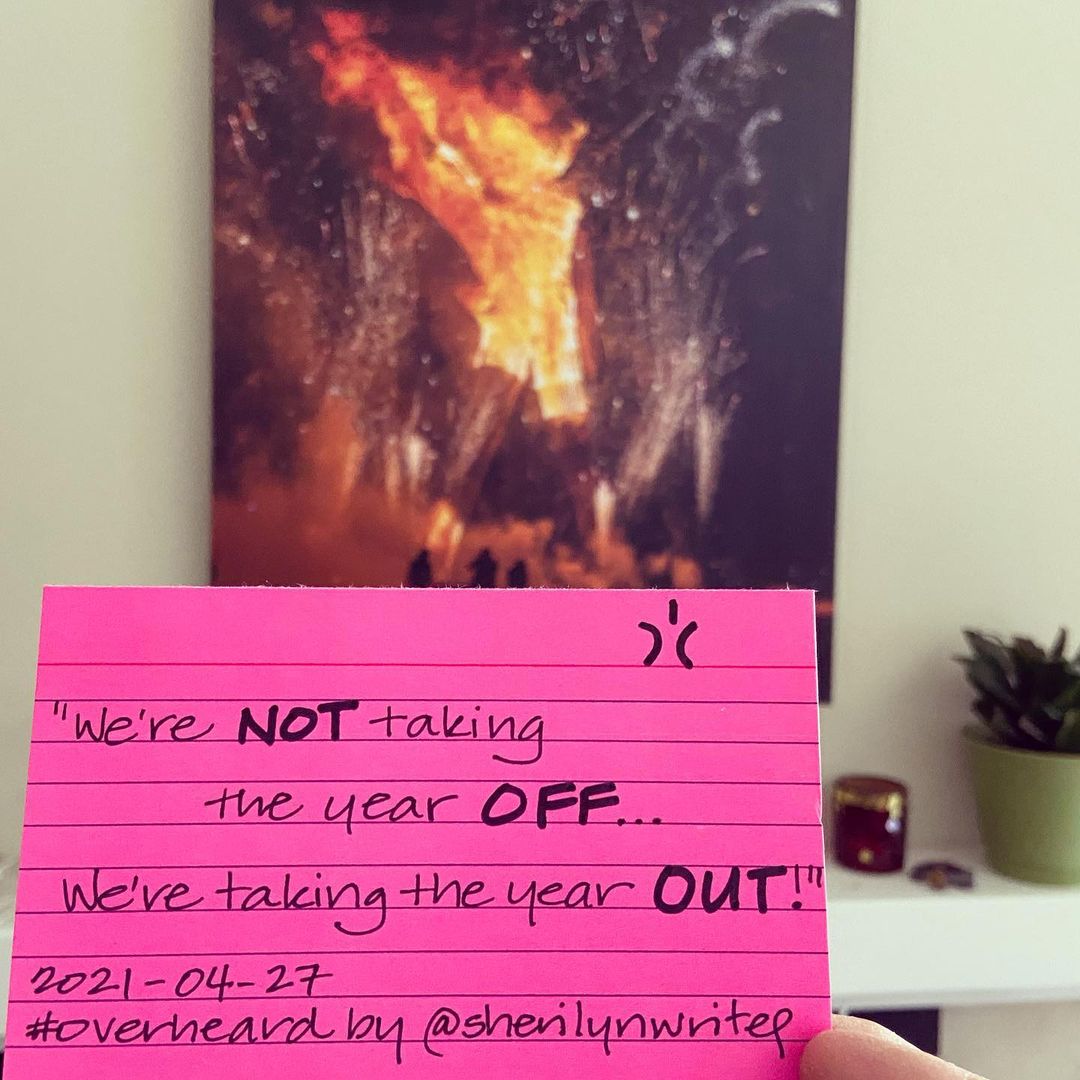 "We're NOT taking
the year OFF...
We're taking the year OUT!"
2021-04-27
#overheard by @sherilynwrites